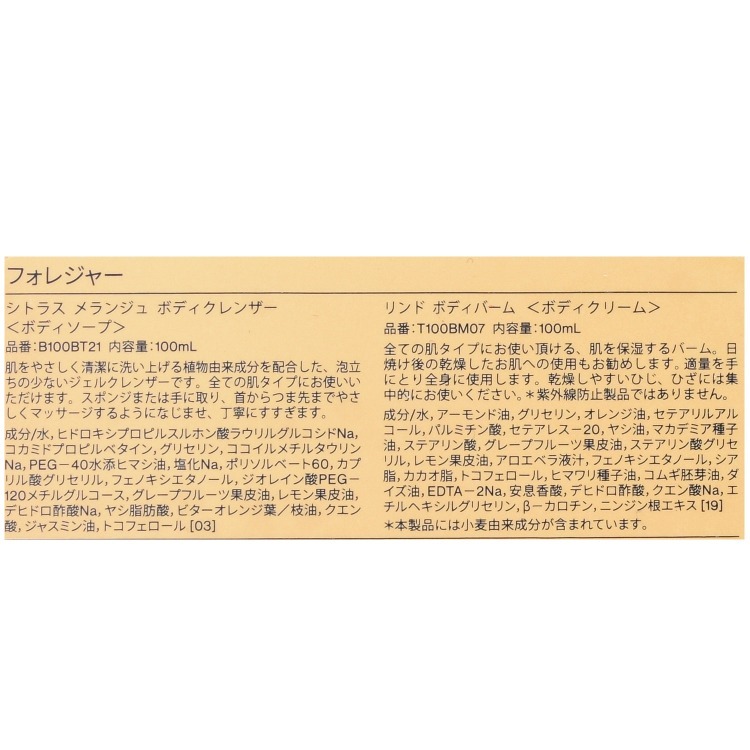 フォレジャー
シトラス メランジュ ボディクレンザー
＜ボディソープ＞
品番：B100BT21 内容量：100mL
肌をやさしく清潔に洗い上げる植物由来成分を配合した、泡立
ちの少ないジェルクレンザーです。全ての肌タイプにお使いい
ただけます。スポンジまたは手に取り、首からつま先までやさ
しくマッサージするようになじませ、丁寧にすすぎます。
成分/水，ヒドロキシプロピルスルホン酸ラウリルグルコシドNa，
コカミドプロピルベタイン，グリセリン，ココイルメチルタウリン
Na，PEG－40水添ヒマシ油，塩化Na，ポリソルベート60，カプ
リル酸グリセリル，フェノキシエタノール，ジオレイン酸PEG－
120メチルグルコース，グレープフルーツ果皮油，レモン果皮油，
デヒドロ酢酸Na，ヤシ脂肪酸，ビターオレンジ葉／枝油，クエン
酸，ジャスミン油，トコフェロール [03]
リンド ボディバーム ＜ボディクリーム＞
品番：T100BM07 内容量：100mL
全ての肌タイプにお使い頂ける、肌を保湿するバーム。日
焼け後の乾燥したお肌への使用もお勧めします。適量を手
にとり全身に使用します。乾燥しやすいひじ、ひざには集
中的にお使いください。＊紫外線防止製品ではありません。
成分/水，アーモンド油，グリセリン，オレンジ油，セテアリルアル
コール，パルミチン酸，セテアレス－20，ヤシ油，マカデミア種子
油，ステアリン酸，グレープフルーツ果皮油，ステアリン酸グリセ
リル，レモン果皮油，アロエベラ液汁，フェノキシエタノール，シア
脂，カカオ脂，トコフェロール，ヒマワリ種子油，コムギ胚芽油，ダ
イズ油，EDTA－2Na，安息香酸，デヒドロ酢酸，クエン酸Na，エ
チルヘキシルグリセリン，β－カロチン，ニンジン根エキス [19]
＊本製品には小麦由来成分が含まれています。